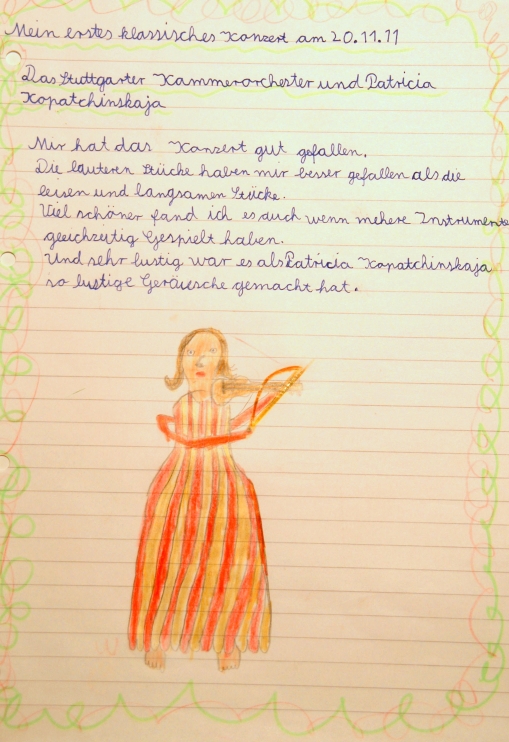 Mein erstes klassisches Konzert am 20.11.11
Das Stuttgarter Kammerorchester und Patricia
Kopatchinskaja
Mir hat das Konzert gut gefallen.
Die lauteren Stücke haben mir besser gefallen als die
leisen und langsamen Stücke.
Viel schöner fand ich es auch wenn mehere Instrumente
geichzeitig Gespielt haben.
Und sehr lustig war es als Patricia Kopatchinskaja
so lustige Geräusche gemacht hat.